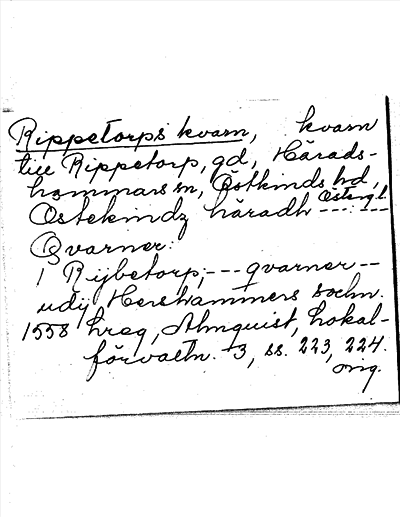 Rippetorps kvarn, kvarn
till Rippetorp, gd, Härads-
hammars sn, Östkinds hd,
Östergl.
Østekindz häradh ---:---
Qvarner:
I Rijbetorp; --- qvarner --
udij Hershammers sochn.
1558 hreg, Almquist, Lokal-
förvaltn. 3, ss. 223, 224.
orig.